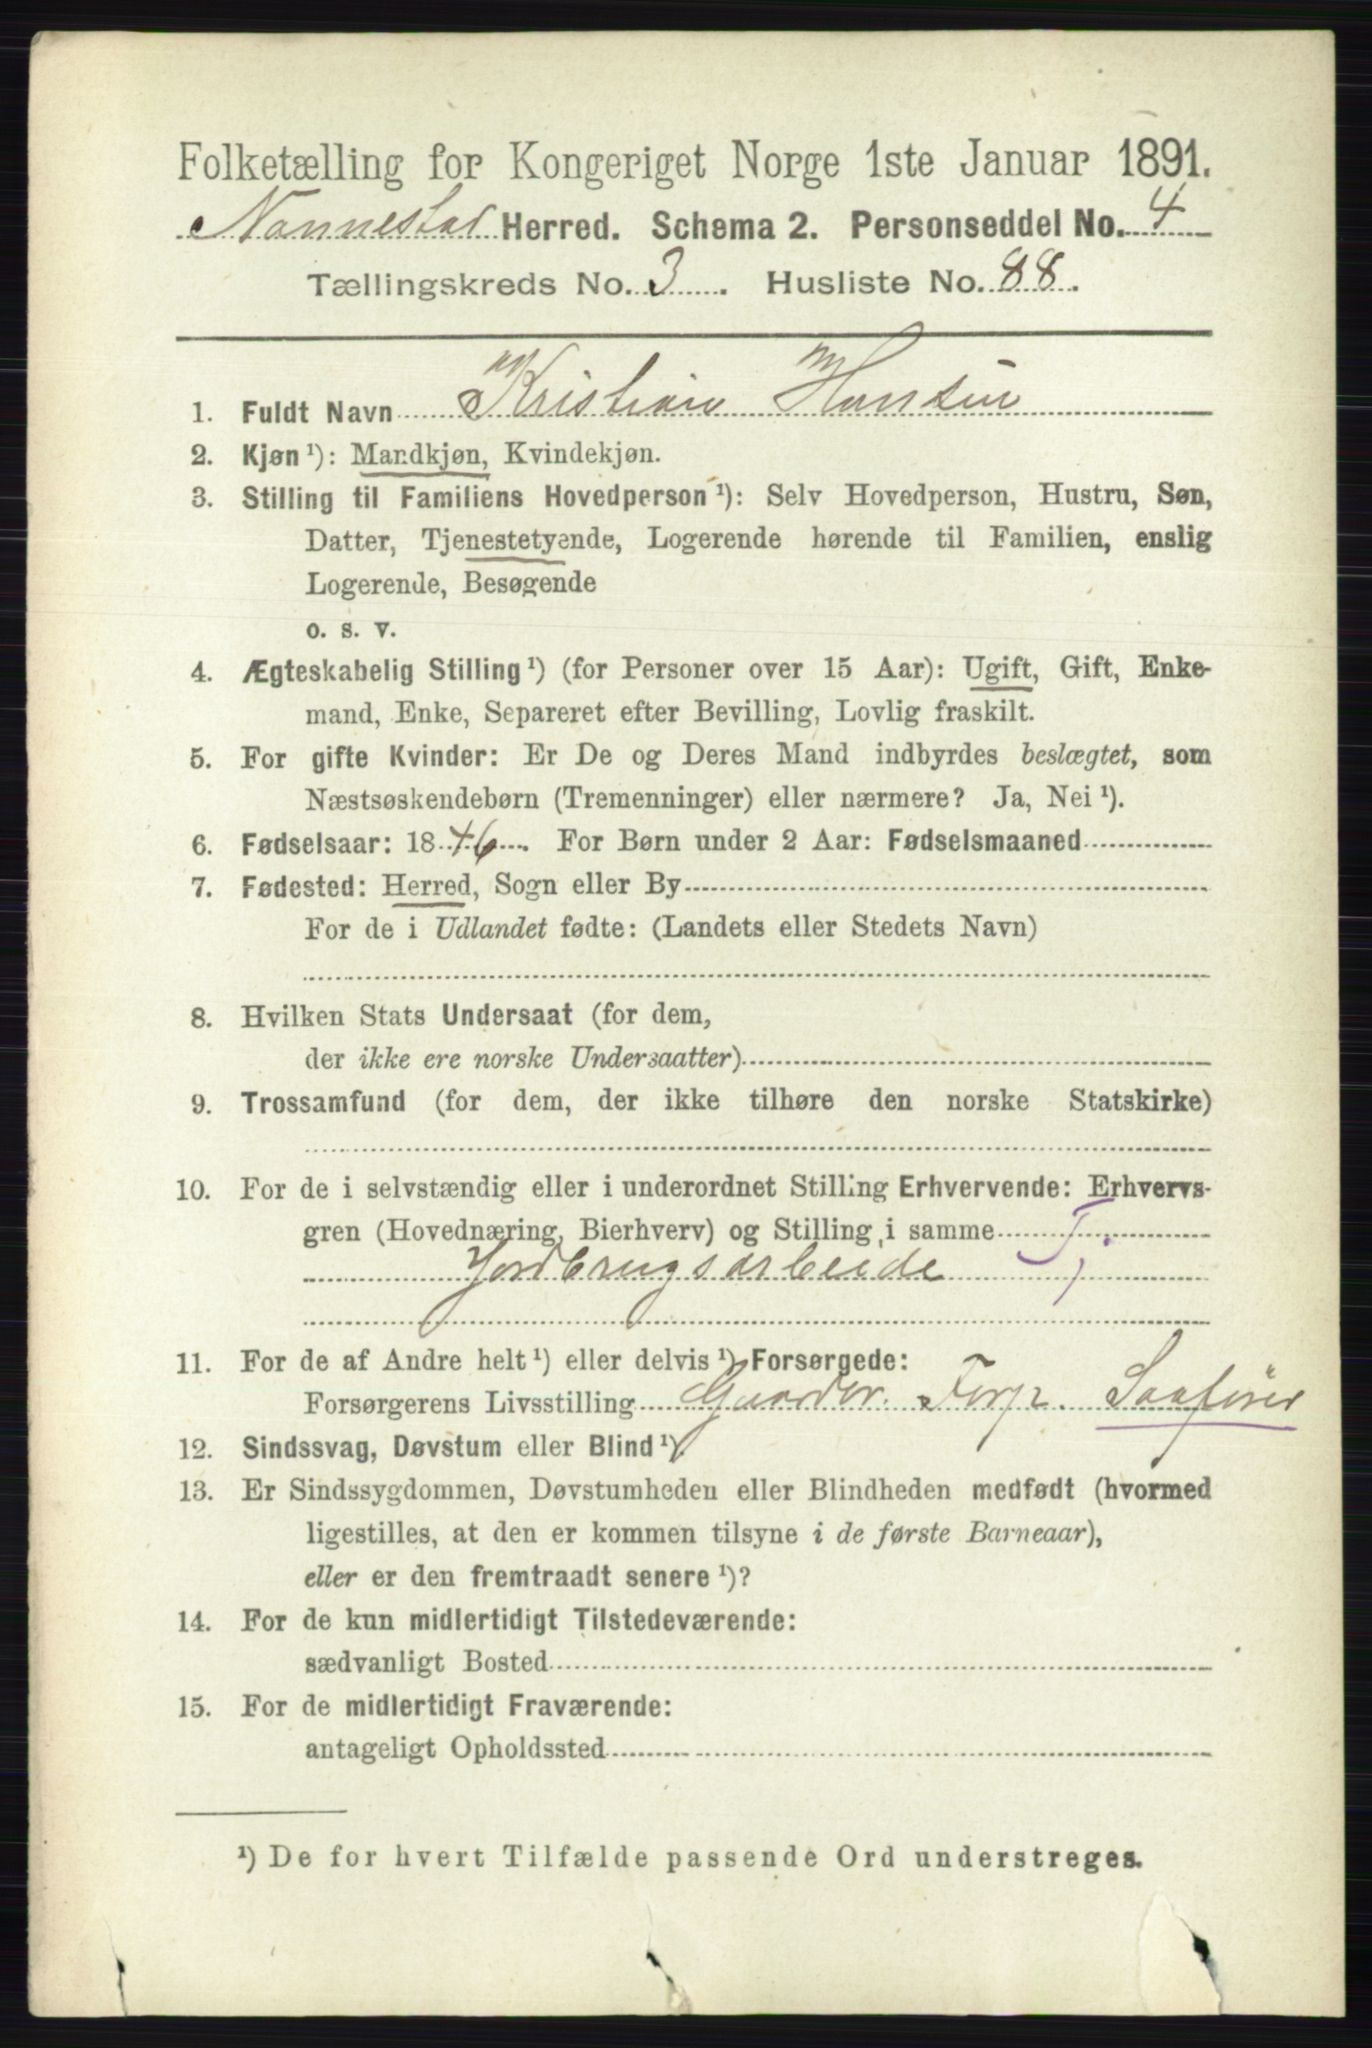 Folketælling for Kongeriget Norge 1ste Januar 1891.
Nannestad Herred. Schema 2. Personseddel No. 4
Tællingskreds No. 3. Husliste No. 88.
1. Fuldt Navn Kristian Hansen
2. Kjøn ¹): Mandkjøn, Kvindekjøn.
3. Stilling til Familiens Hovedperson ¹): Selv Hovedperson, Hustru, Søn,
Datter, Tjenestetyende, Logerende hørende til Familien, enslig
Logerende, Besøgende
o. s. v.
4. Ægteskabelig Stilling ¹) (for Personer over 15 Aar): Ugift, Gift, Enke-
mand, Enke, Separeret efter Bevilling, Lovlig fraskilt.
5. For gifte Kvinder: Er De og Deres Mand indbyrdes beslægtet, som
Næstsøskendebørn (Tremenninger) eller nærmere? Ja, Nei ¹).
6. Fødselsaar: 1846. For Børn under 2 Aar: Fødselsmaaned
7. Fødested: Herred, Sogn eller By
For de i Udlandet fødte: (Landets eller Stedets Navn)
8. Hvilken Stats Undersaat (for dem,
der ikke ere norske Undersaatter)
9. Trossamfund (for dem, der ikke tilhøre den norske Statskirke)
10. For de i selvstændig eller i underordnet Stilling Erhvervende: Erhvervs-
gren (Hovednæring, Bierhverv) og Stilling i samme Tj.
Jordbrugsarbeide
11. For de af Andre helt ¹) eller delvis ¹) Forsørgede:
Forsørgerens Livsstilling Gaardbr.
12. Sindssvag, Døvstum eller Blind ¹).
13. Er Sindssygdommen, Døvstumheden eller Blindheden medfødt (hvormed
ligestilles, at den er kommen tilsyne i de første Barneaar),
eller er den fremtraadt senere ¹)?
14. For de kun midlertidigt Tilstedeværende:
sædvanligt Bosted
15. For de midlertidigt Fraværende:
antageligt Opholdssted
¹) De for hvert Tilfælde passende Ord understreges.